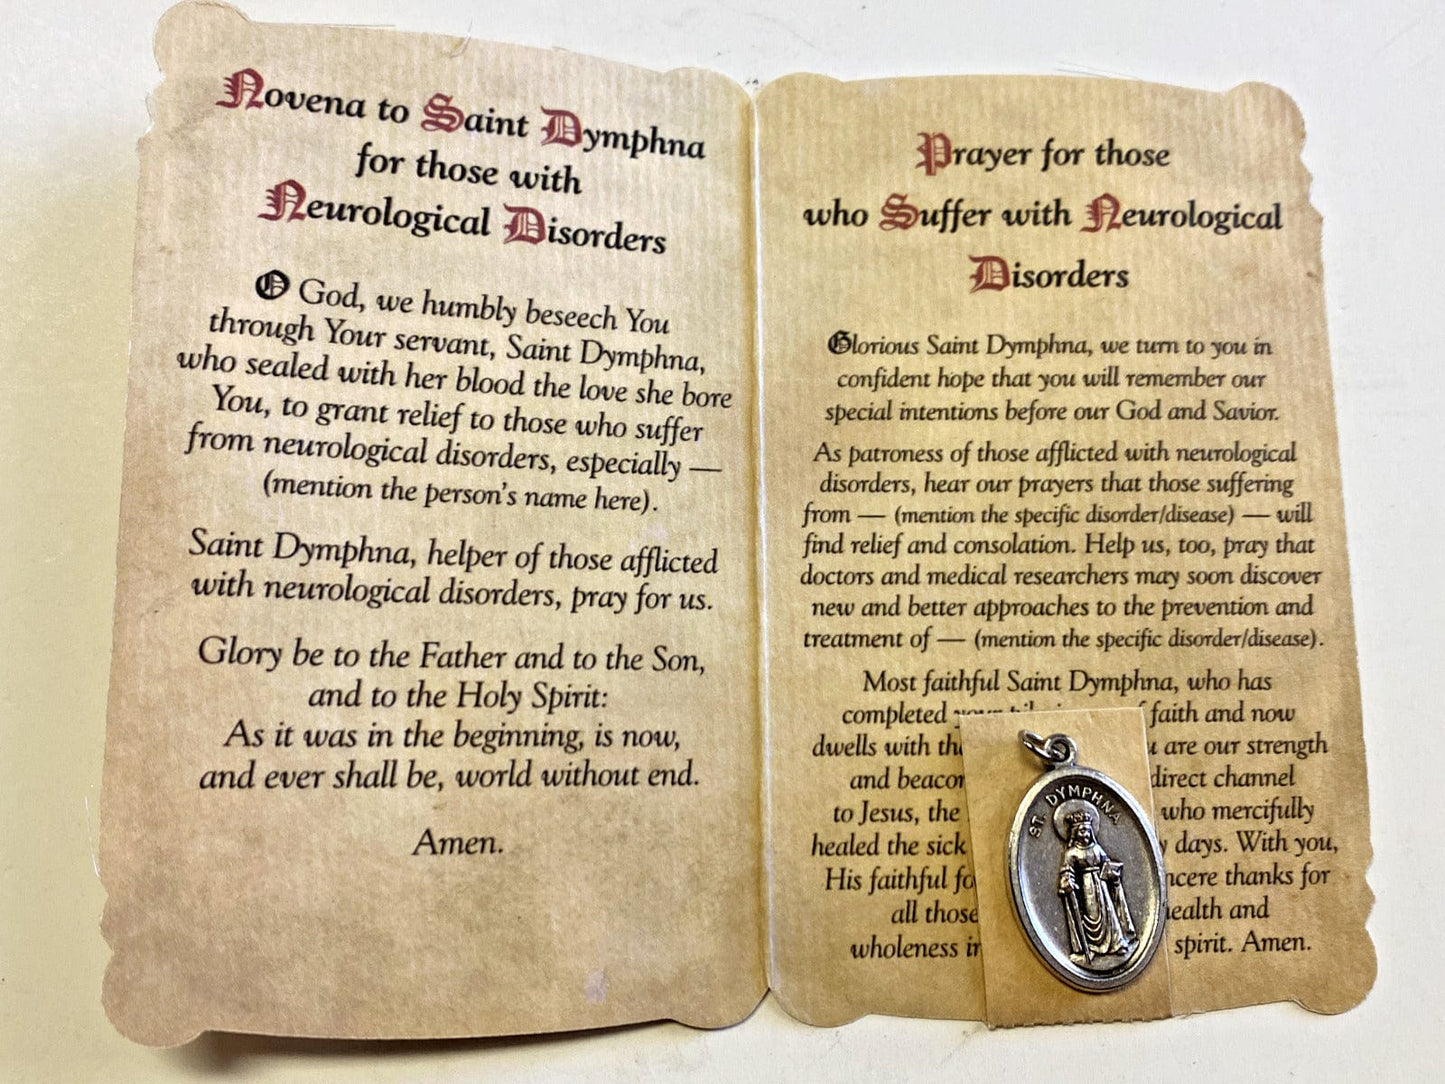 Novena to Saint Dymphna
for those with
Neurological Disorders
O God, we humbly beseech You
through Your servant, Saint Dymphna,
who sealed with her blood the love she bore
You, to grant relief to those who suffer
from neurological disorders, especially —
(mention the person's name here).
Saint Dymphna, helper of those afflicted
with neurological disorders, pray for us.
Glory be to the Father and to the Son,
and to the Holy Spirit:
As it was in the beginning, is now,
and ever shall be, world without end.
Amen.
Prayer for those
who Suffer with Neurological
Disorders
Glorious Saint Dymphna, we turn to you in
confident hope that you will remember our
special intentions before our God and Savior.
As patroness of those afflicted with neurological
disorders, hear our prayers that those suffering
from — (mention the specific disorder/disease) — will
find relief and consolation. Help us, too, pray that
doctors and medical researchers may soon discover
new and better approaches to the prevention and
treatment of — (mention the specific disorder/disease).
Most faithful Saint Dymphna, who has
completed faith and now
dwells with are our strength
and direct channel
to Jesus, the who mercifully
healed the sick days. With you,
His faithful thanks for
all those and
wholeness spirit. Amen.
ST. DYMPHNA